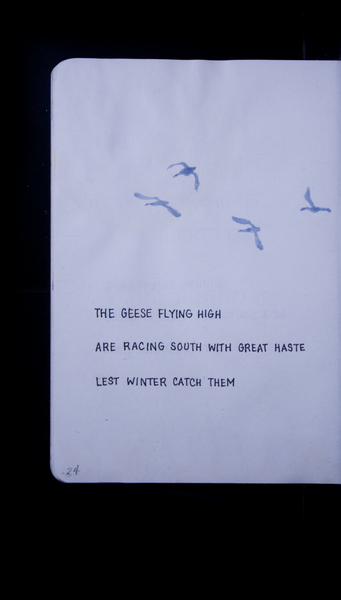 THE GEESE FLYING HIGH
ARE RACING SOUTH WITH GREAT HASTE
LEST WINTER CATCH THEM
24